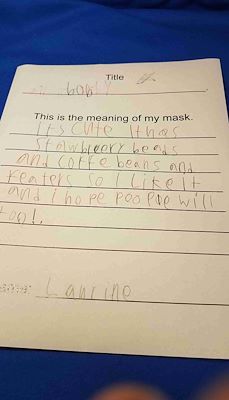 Title
This is the meaning of my mask.
its cute it has
strawbreery beads
and coffe beans and
so I like it
and I hope peoploe will
too!
Laurine